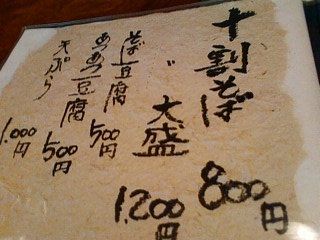 十割そば 800円
〃 大盛 1,200円
そば豆腐 500円
あつあつ豆腐 500円
天ぷら 1,000円